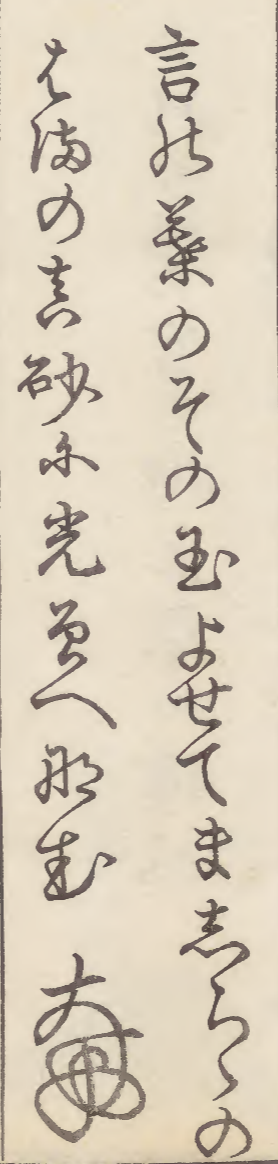 言能葉のその玉よせてましらゝの
はまの真砂に光曽へ那む